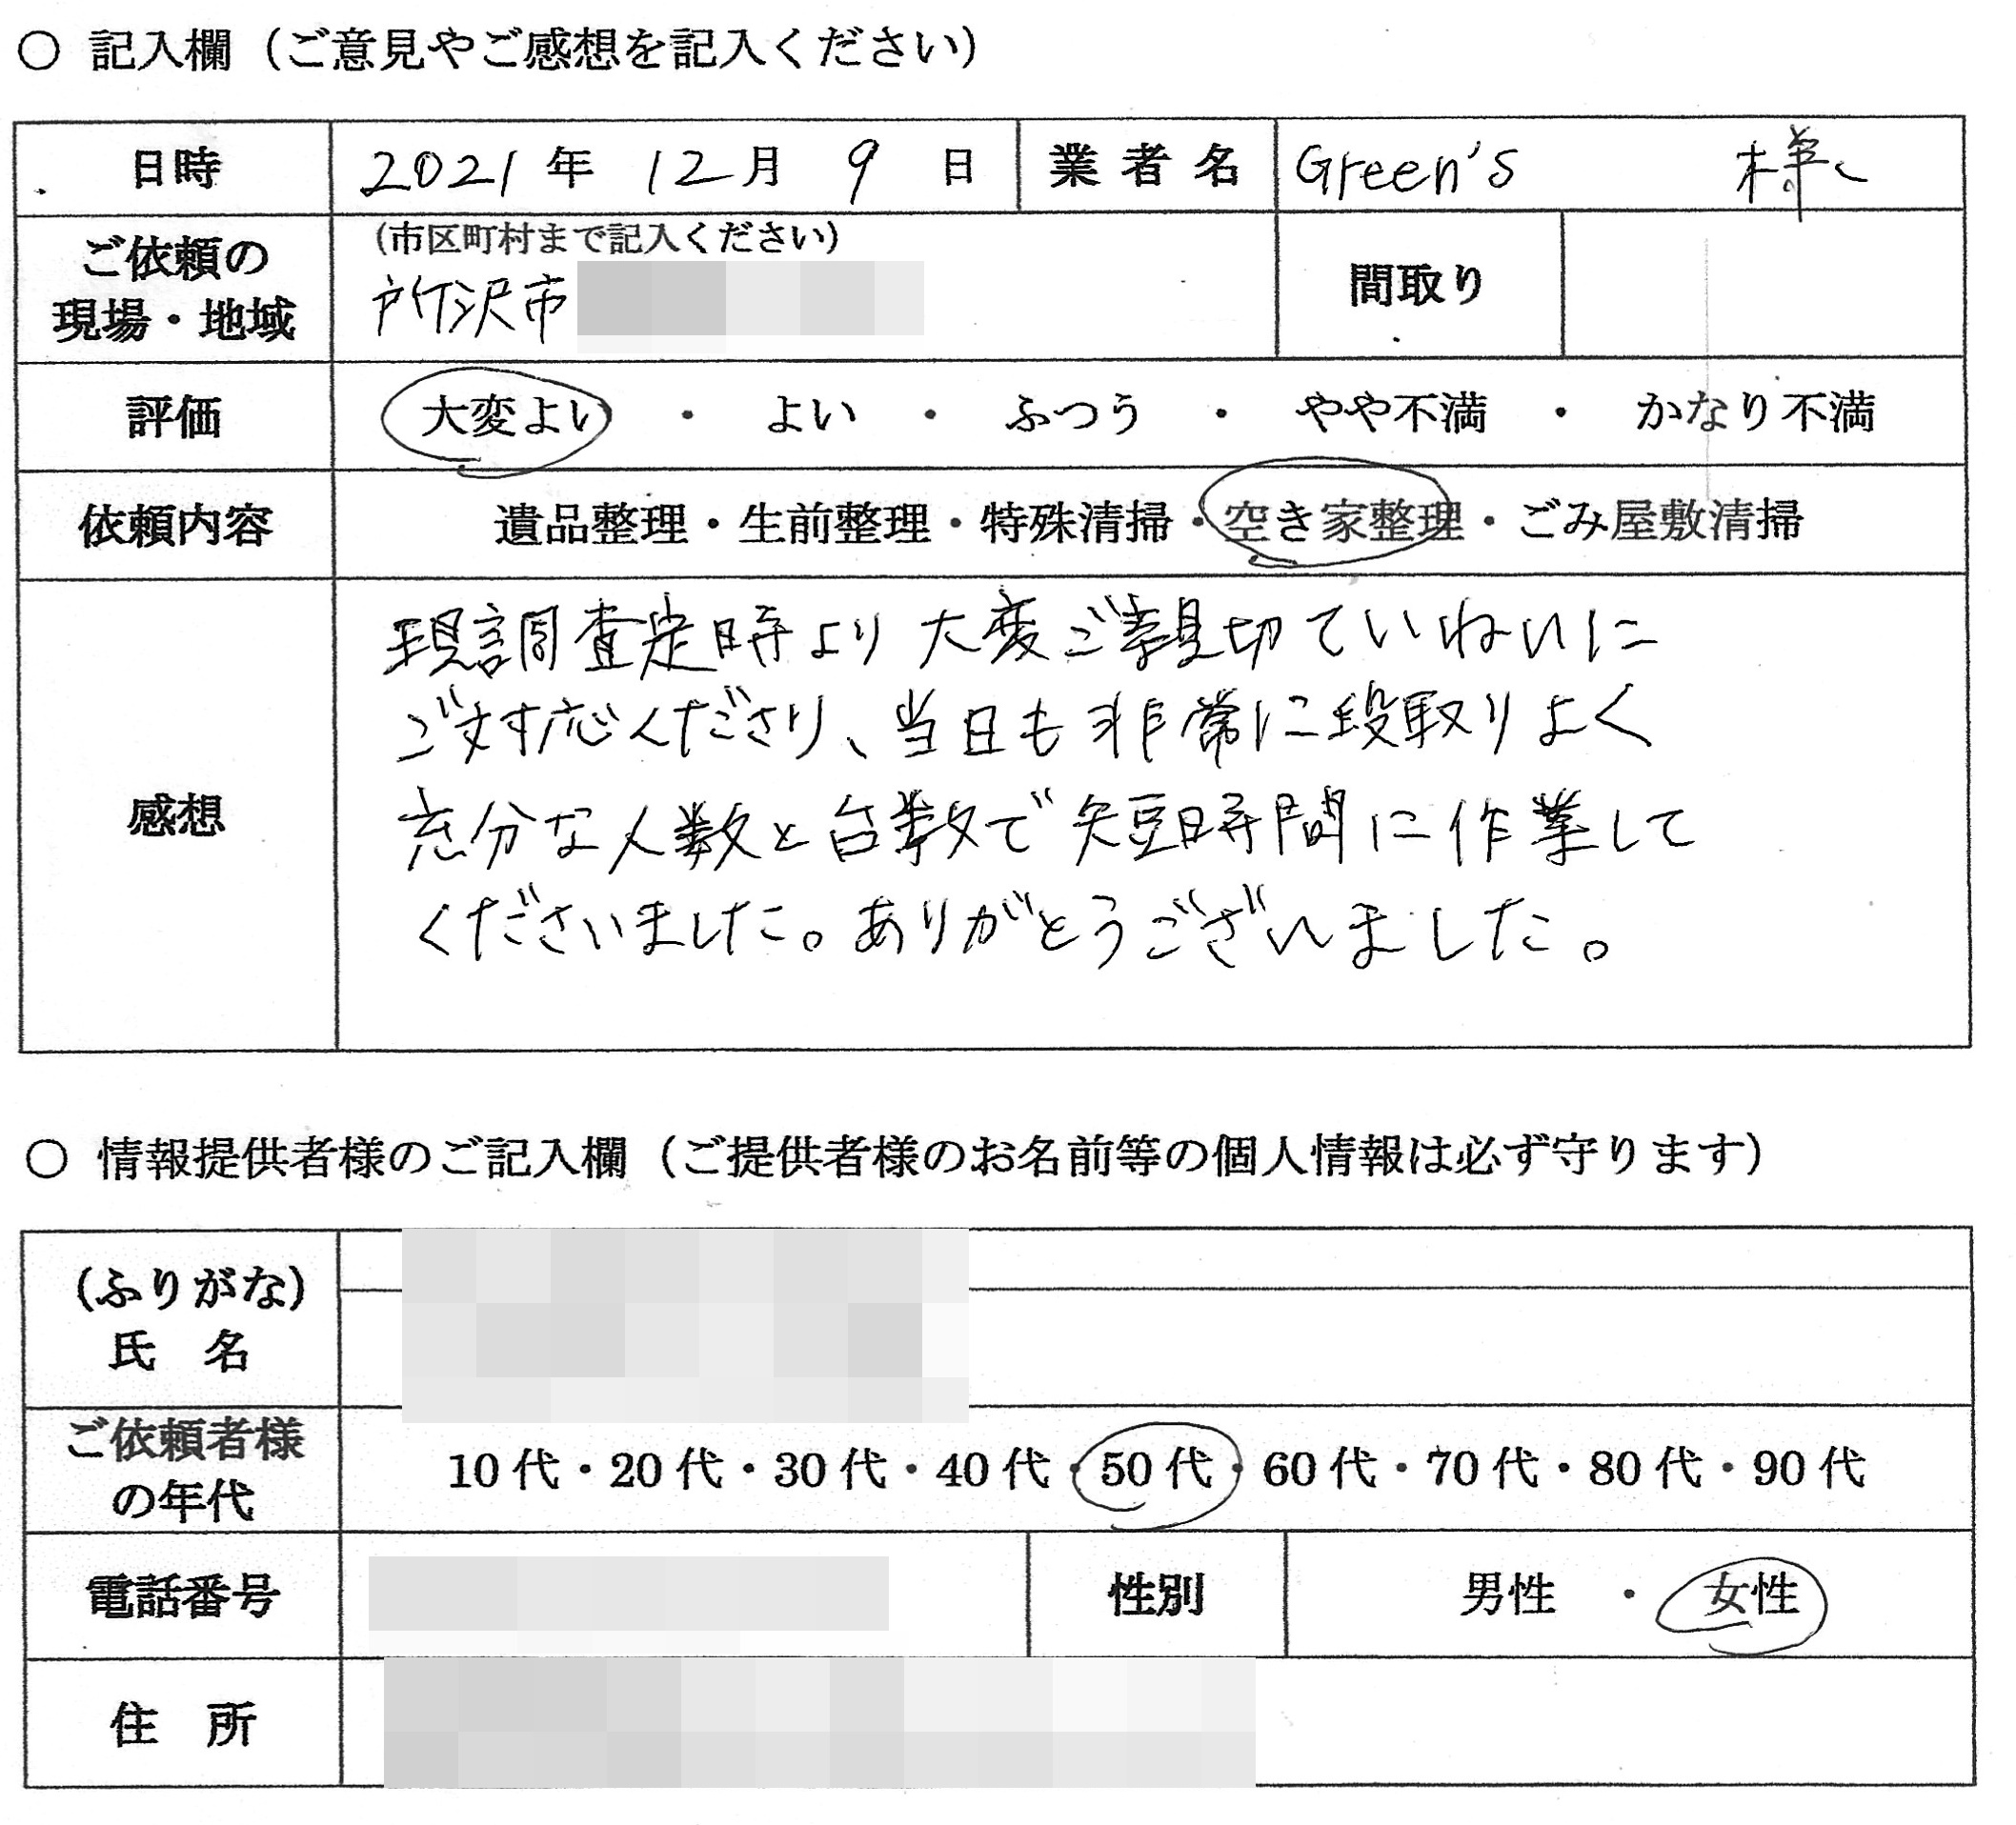 ○ 記入欄（ご意見やご感想を記入ください）
日時 2021 年 12 月 9 日 業者名 Green's 様
ご依頼の
現場・地域
（市区町村まで記入ください）
所沢市
間取り
評価 大変よい ・ よい ・ ふつう ・ やや不満 ・ かなり不満
依頼内容 遺品整理・生前整理・特殊清掃・空き家整理・ごみ屋敷清掃
感想
現調査定時より大変ご親切ていねいに
ご対応くださり、当日も非常に段取りよく
充分な人数と台数で短時間に作業して
くださいました。ありがとうございました。
○ 情報提供者様のご記入欄（ご提供者様のお名前等の個人情報は必ず守ります）
（ふりがな）
氏 名
ご依頼者様
の年代
10 代・20 代・30 代・40 代・50 代・60 代・70 代・80 代・90 代
電話番号 性別 男性 ・ 女性
住 所